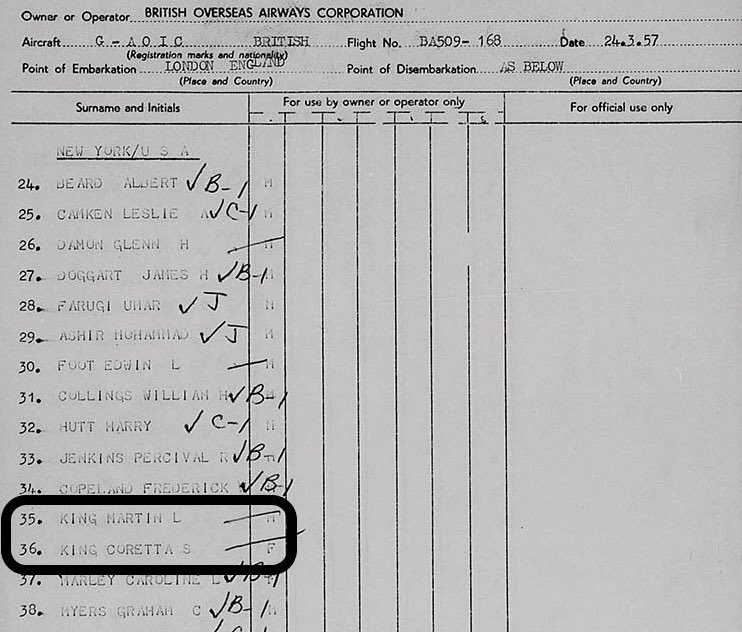 Owner or Operator BRITISH OVERSEAS AIRWAYS CORPORATION
Aircraft G-AOIC BRITISH Flight No. BA509-168 Date 24.3.57
(Registration marks and nationality)
Point of Embarkation LONDON ENGLAND Point of Disembarkation AS BELOW
(Place and Country) (Place and Country)
Surname and Initials For use by owner or operator only For official use only
NEW YORK/U S A
24. BEARD ALBERT ✓ B-1 M
25. CAMKEN LESLIE A ✓ C-1 M
26. DAMON GLENN H M
27. DOGGART JAMES H ✓ B-1 M
28. FARUGI UMAR ✓ J M
29. ASHIR MOHAMMAD ✓ J M
30. FOOT EDWIN L M
31. COLLINGS WILLIAM H ✓ B-1 M
32. HUTT HARRY ✓ C-1 M
33. JENKINS PERCIVAL R ✓ B-1
34. COPELAND FREDERICK ✓ B-1
35. KING MARTIN L M
36. KING CORETTA S F
37. MARLEY CAROLINE L ✓ B-1
38. MYERS GRAHAM C ✓ B-1 M